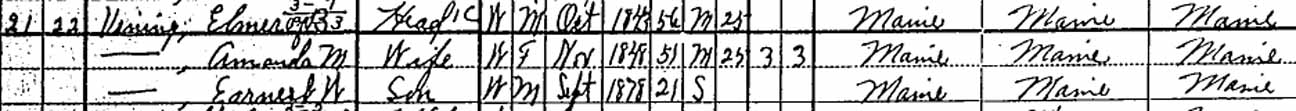 21 22 Vining, Elmer Head W M Oct 1843 56 M 25 Maine Maine Maine
—, Amanda M Wife W F Nov 1848 51 M 25 3 3 Maine Maine Maine
—, Earnest W Son W M Sept 1878 21 S Maine Maine Maine